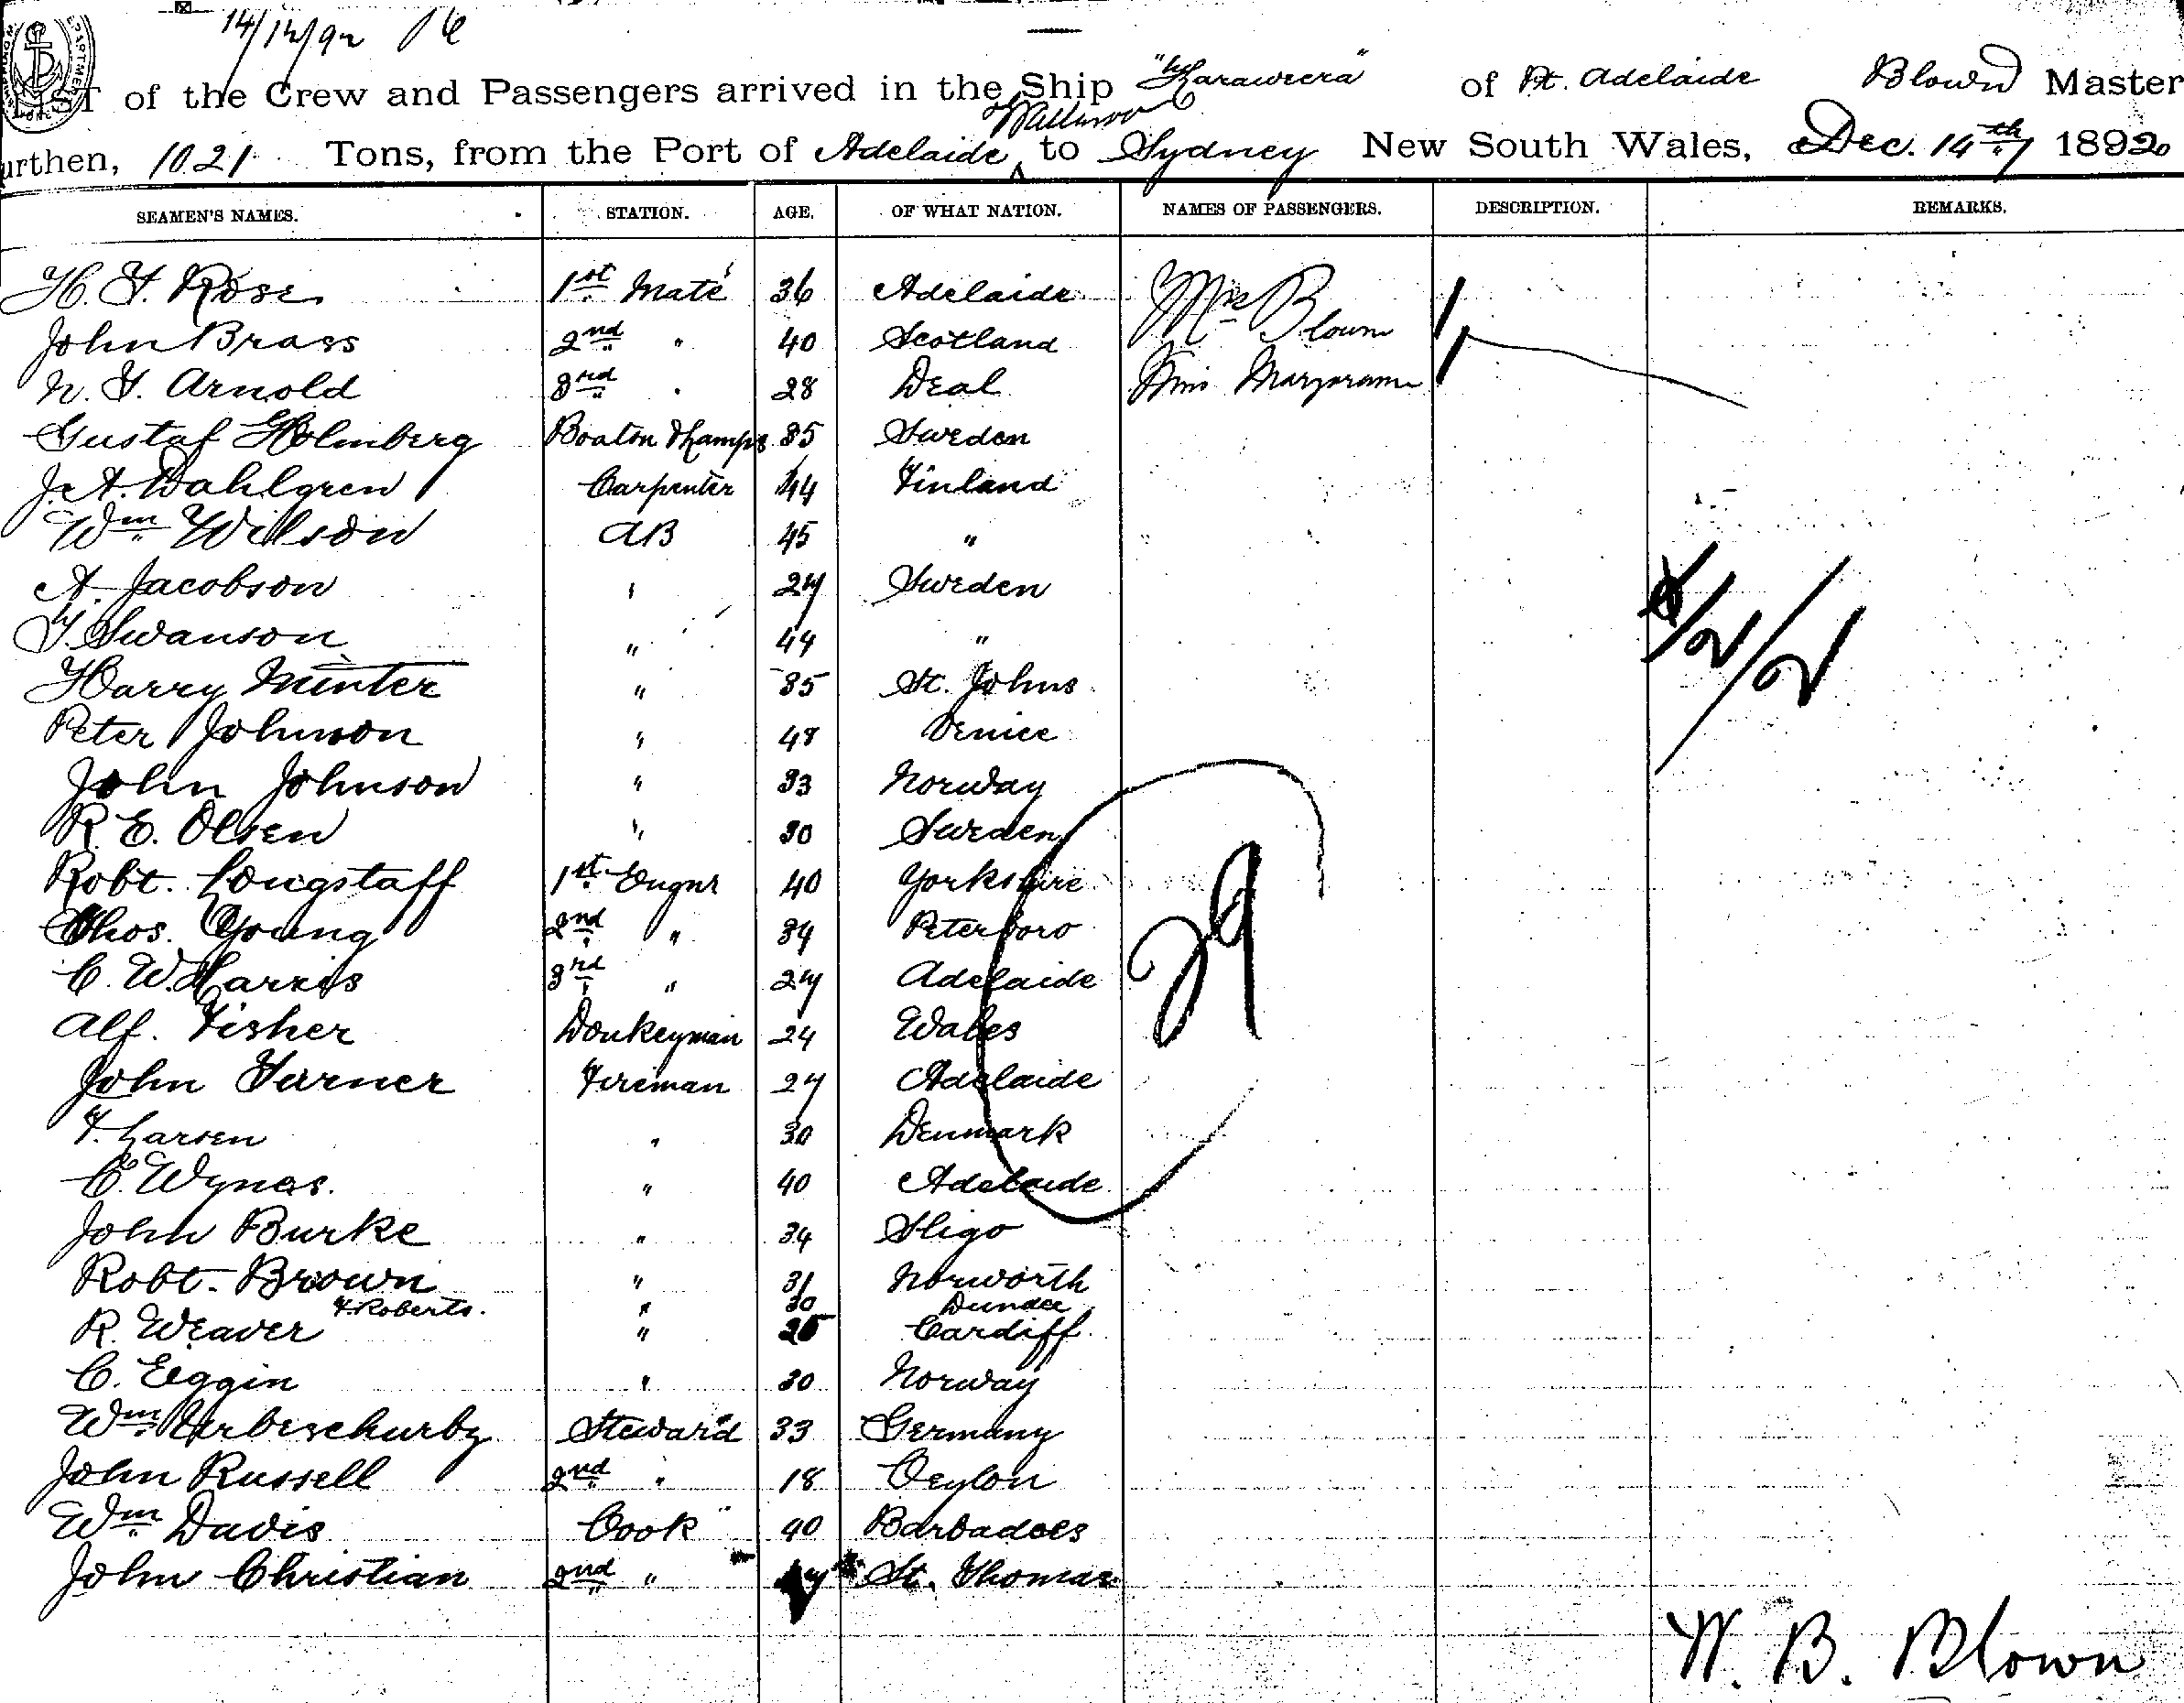 14/12/92 16
LIST of the Crew and Passengers arrived in the Ship "Karaweera" of Pt. Adelaide Blown Master
Wallaroo
urthen, 1021 Tons, from the Port of Adelaide ^ to Sydney New South Wales, Dec. 14th 1892
SEAMEN'S NAMES. STATION. AGE. OF WHAT NATION. NAMES OF PASSENGERS. DESCRIPTION. REMARKS.
H. F. Rose 1st Mate 36 Adelaide Mrs Blown
John Brass 2nd " 40 Scotland
N. F. Arnold 3rd " 28 Deal Miss Marjoram
Gustaf Holmberg Boatsn & Lamps 35 Sweden
J. A. Dahlgren Carpenter 44 Finland
Wm Wilson AB 45 "
A. Jacobson " 24 Sweden
F. Swanson " 44 "
Harry Minter " 35 St. Johns
Peter Johnson " 48 Venice
John Johnson " 33 Norway
R. E. Olsen " 30 Sweden
Robt. Longstaff 1st Engnr 40 Yorkshire
Thos. Young 2nd " 34 Peterboro
C. W. Harris 3rd " 24 Adelaide
29
Alf. Fisher Donkeyman 24 Wales
John Farner Fireman 24 Adelaide
F. Larsen " 30 Denmark
C. Wynas. " 40 Adelaide
John Burke " 34 Sligo
Robt. Brown " 31 Norworth
F. Roberts. " 30 Dundee
R. Weaver " 25 Cardiff
C. Eggin " 30 Norway
Wm Steward 33 Germany
John Russell 2nd " 18 Ceylon
Wm Davis Cook 40 Barbadoes
John Christian 2nd " St. Thomas
W. B. Blown